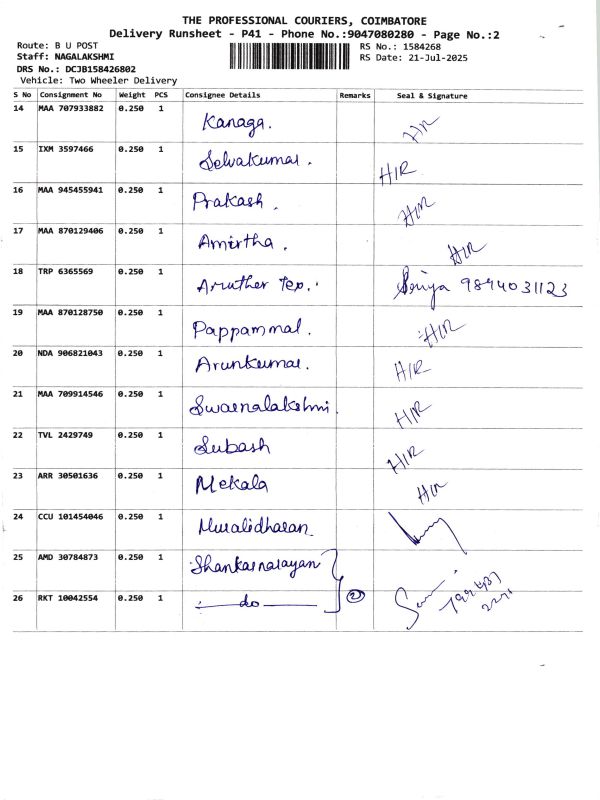 THE PROFESSIONAL COURIERS, COIMBATORE
Delivery Runsheet - P41 - Phone No.:9047080280 - Page No.:2
Route: B U POST
RS No.: 1584268
Staff: NAGALAKSHMI
RS Date: 21-Jul-2025
DRS No.: DCJB158426802
Vehicle: Two Wheeler Delivery
S No Consignment No Weight PCS Consignee Details Remarks Seal & Signature
14 MAA 707933882 0.250 1 Kanaga. H/R
15 IXM 3597466 0.250 1 Selvakumar. H/R
16 MAA 945455941 0.250 1 Prakash. H/R
17 MAA 870129406 0.250 1 Amirtha. H/R
18 TRP 6365569 0.250 1 Aruther Tex. 9894031123
19 MAA 870128750 0.250 1 Pappammal. H/R
20 NDA 906821043 0.250 1 Arunkumar. H/R
21 MAA 709914546 0.250 1 Swarnalakshmi. H/R
22 TVL 2429749 0.250 1 Subash H/R
23 ARR 30501636 0.250 1 Mekala H/R
24 CCU 101454046 0.250 1 Muralidharan
25 AMD 30784873 0.250 1 Shankarnarayan
26 RKT 10042554 0.250 1 do 2